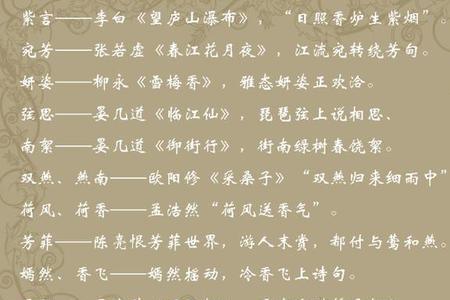 紫言——李白《望庐山瀑布》，“日照香炉生紫烟”。
宛芳——张若虚《春江花月夜》，江流宛转绕芳甸。
妍姿——柳永《雪梅香》，雅态妍姿正欢洽。
弦思——晏几道《临江仙》，琵琶弦上说相思、
南絮——晏几道《御街行》，街南绿树春饶絮。
双燕、燕南——欧阳修《采桑子》“双燕归来细雨中”
荷风、荷香——孟浩然“荷风送香气”。
芳菲——陈亮恨芳菲世界，游人未赏，都付与莺和燕。
嫣然、香飞——嫣然摇动，冷香飞上诗句。